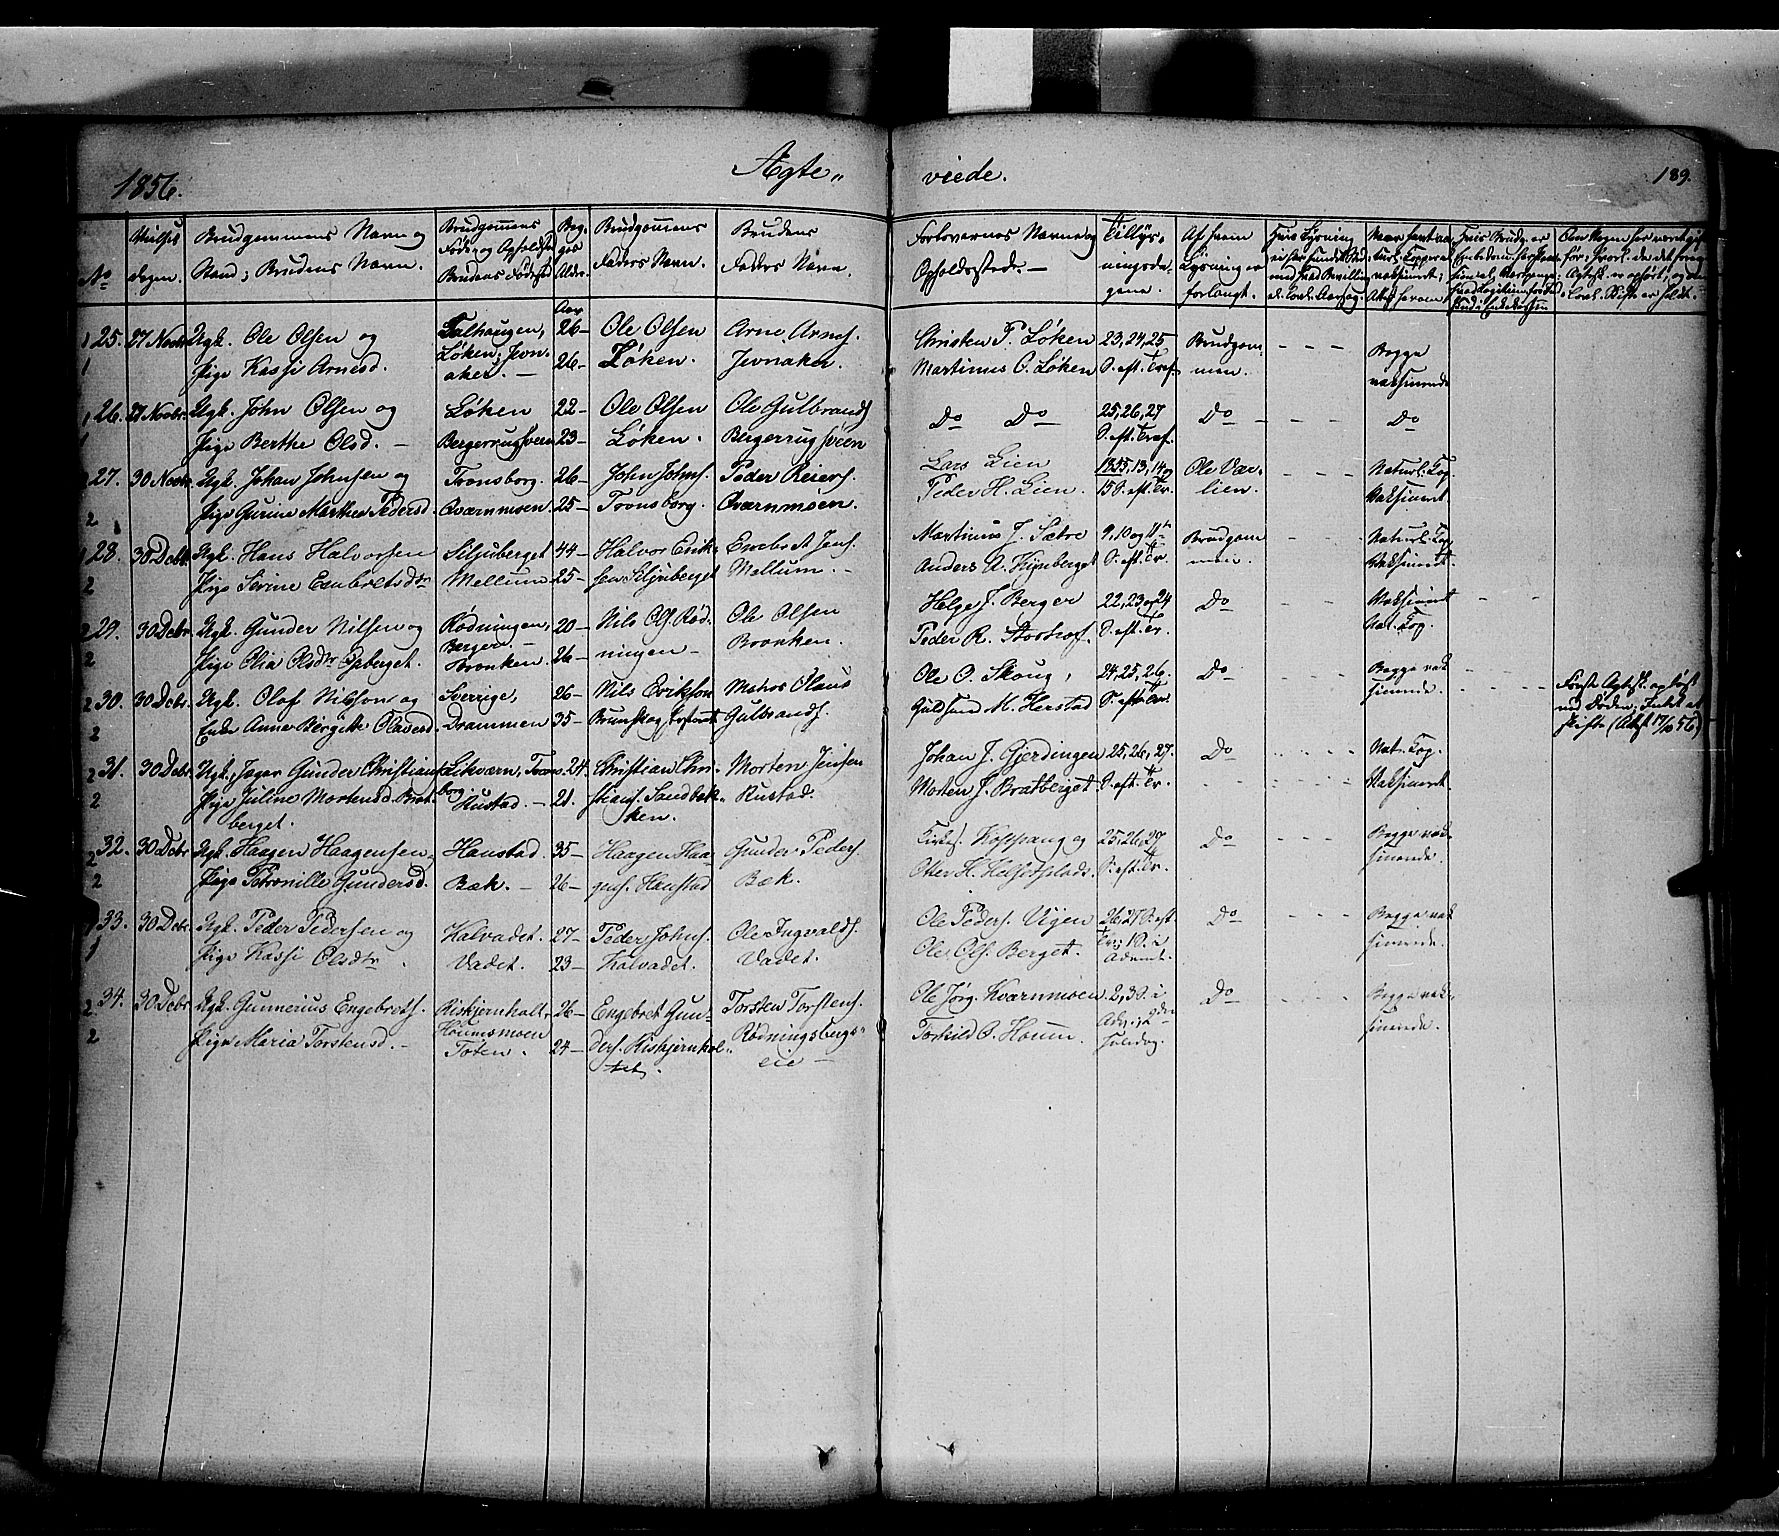 1856.
Ægte„
viede.
189.
No
Vielses
dagen.
Brudgommens Navn og
Stand; Brudens Navn.
Brudgommens
Føde og Opholdst.
Brudens Fødest.
Beg-
ges
Alder.
Brudgommens
Faders Navn.
Brudens
Faders Navn.
Forlovernes Navne og
Opholdssted. —
Tillys-
ningsda-
gene.
Af hvem
Lysning er
forlangt.
Aar
25. 27 Novbr. Ugk. Ole Olsen og
Pige Kassi Arnesd.
Løken; Jevn-
aker. —
26 —
26 —
Ole Olsen
Løken.
Arne Arnes.
Jevnaker.
Christen P. Løken
Martinus O. Løken
23, 24, 25
S. eft. Tref.
Brudgom
men.
Begge
vaksinerede
26. 27 Novbr. Ugk. John Olsen og
Pige Berthe Olsd. —
Løken
22 —
23 —
Ole Olsen
Løken.
Ole Gulbrands
Bergerrugsveen
Do Do
25, 26, 27
S. eft. Tref.
Do
Do
27. 30 Novbr. Ugk. Johan Johnsen og
Pige Gurine Marthea Pedersd.
Tronsborg.
Qværnmoen.
26 —
25 —
John Johns.
Tronsborg.
Peder Reiers.
Qværnmoen.
Lars Lien
Peder H. Lien.
15 S. eft. Tr.
Ole Vær-
lien.
Naturl. Kop.
Vaksineret
28. 30 Decbr. Ugk. Hans Halvorsen
Pige Serine Embretsdtr
Siljuberget
Mellum
44 —
25 —
Halvor Erik-
sen Siljuberget
Embret Jens.
Mellum. —
Martinus J. Sætre
Anders A. Kynberget
9, 10 og 11te
S. eft. Tr.
Brudgom
men.
Naturl. Kop
Vaksineret.
29. 30 Decbr. Ugk. Gunder Nilsen og
Pige Olia Olsdtr Epberget.
Rødningen,
Berger.
Bronken.
20 —
26 —
Nils Ols. Rød-
ningen —
Ole Olsen
Bronken.
Helge J. Berger
Peder R. Storhof.
22, 23 og 24
S. eft. Tr.
Do
Vaksineret
Nat. Kop.
30. 30 Decbr. Ugk. Olof Nilsson og
Enke Anne Birgitte Olavesd.
Sverrige,
Drammen
26 —
35 —
Nils Erikson
Matros Olaus
Gulbrands.
Ole O. Skoug,
Guldsm. M. Herstad
24, 25, 26.
S. eft. Tr.
Do
Begge vak
sinerede.
Første Ægtesk. opløst
ved Døden; Intet at
skifte (Attst 17/10 56)
31. 30 Decbr. Ugk. Jæger Gunder Christians.
Pige Juline Mortensd. Brat-
berget.
Rustad. —
24.
21.
Christian Chri-
stians. Sandbæk-
ken.
Morten Jensen
Rustad.
Johan J. Gjerdingen
Morten J. Bratberget
25, 26, 27.
S. eft. Tr.
Do
Nat. Kop.
Vaksineret.
32. 30 Decbr. Ugk. Haagen Haagensen,
Pige Petronille Gundersd.
Hanstad.
Bæk. —
35 —
26 —
Haagen Haa-
gens. Hanstad
Gunder Peders.
Bæk.
Kirkes. Koppang og
Otter H. Helsetplads.
25, 26, 27
S. eft. Tr.
Do
Begge vak
sinerede.
33. 30 Decbr. Ugk. Peder Pedersen og
Pige Kassi Olsdtr.
Kalvadet.
Vadet.
27 —
23 —
Peder Johns.
Kalvadet.
Ole Ingvalds.
Vadet.
Ole Peders. Vigen
Ole Ols. Berget.
26, 27 S. eft.
Tr., 1 S. i
Advent.
Do
Begge vak
sinerede.
34. 30 Decbr. Ugk. Gunerius Engebrets.
Pige Maria Torstensd. —
Kiskjernholt,
Houmsmoen
Toten.
26 —
24 —
Engebret Gun-
ders. Kiskjernhol-
tet.
Torsten Torstens.
Rødningsbergs-
eie —
Ole Jørg. Kværnmoen
Torkild O. Houm.
2, 3 S. i
Adv., 2den
Juledag.
Do
Begge vak-
sinerede.